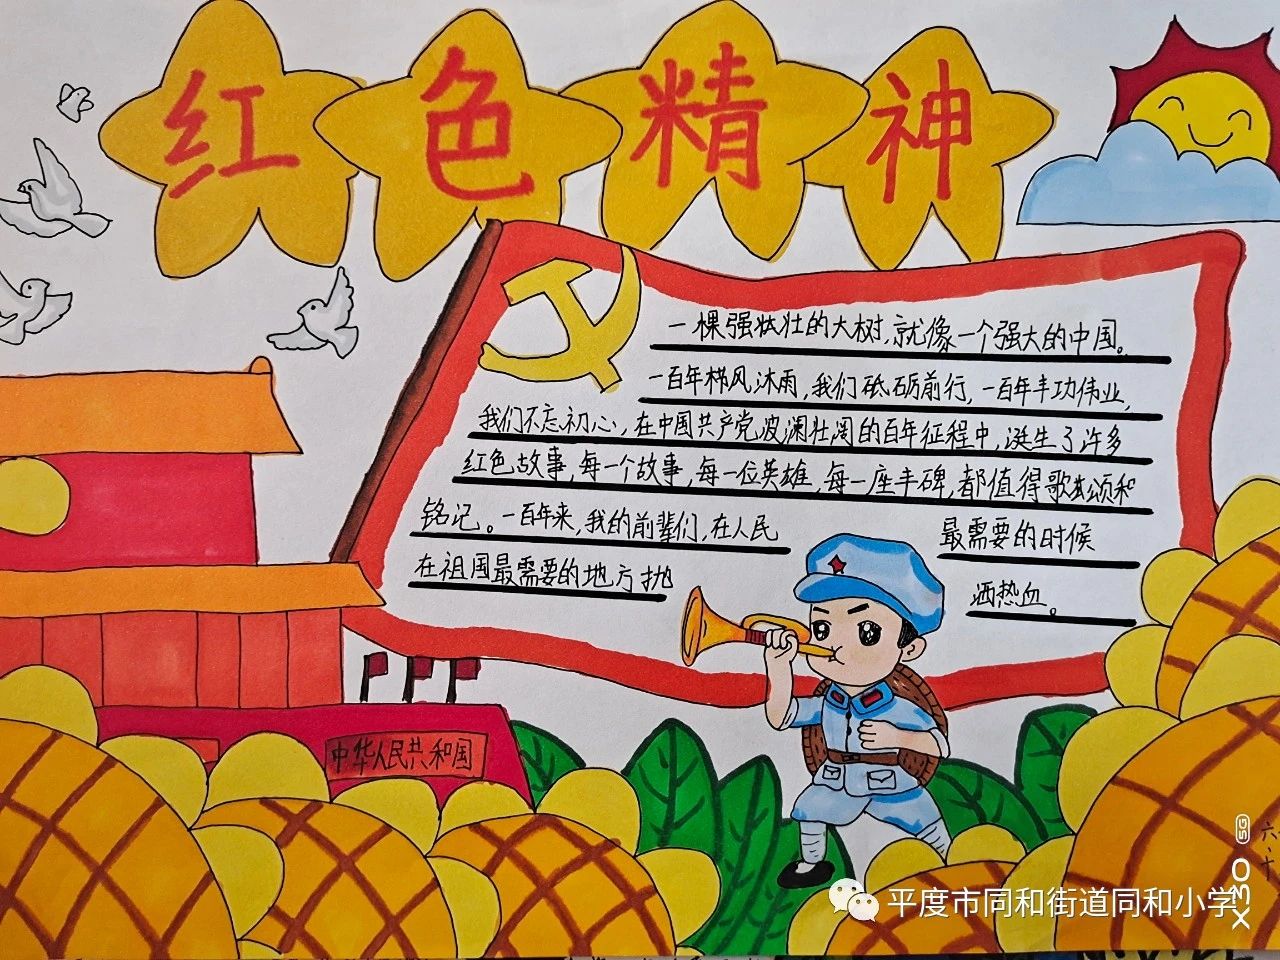 红色精神
一棵强壮壮的大树,就像一个强大的中国。
一百年栉风沐雨,我们砥砺前行,一百年丰功伟业,
我们不忘初心,在中国共产党波澜壮阔的百年征程中,诞生了许多
红色故事,每一个故事,每一位英雄,每一座丰碑,都值得歌颂和
铭记。一百年来,我的前辈们,在人民最需要的时候
在祖国最需要的地方抛洒热血。
中华人民共和国
平度市同和街道同和小学
X30 5G
六、十